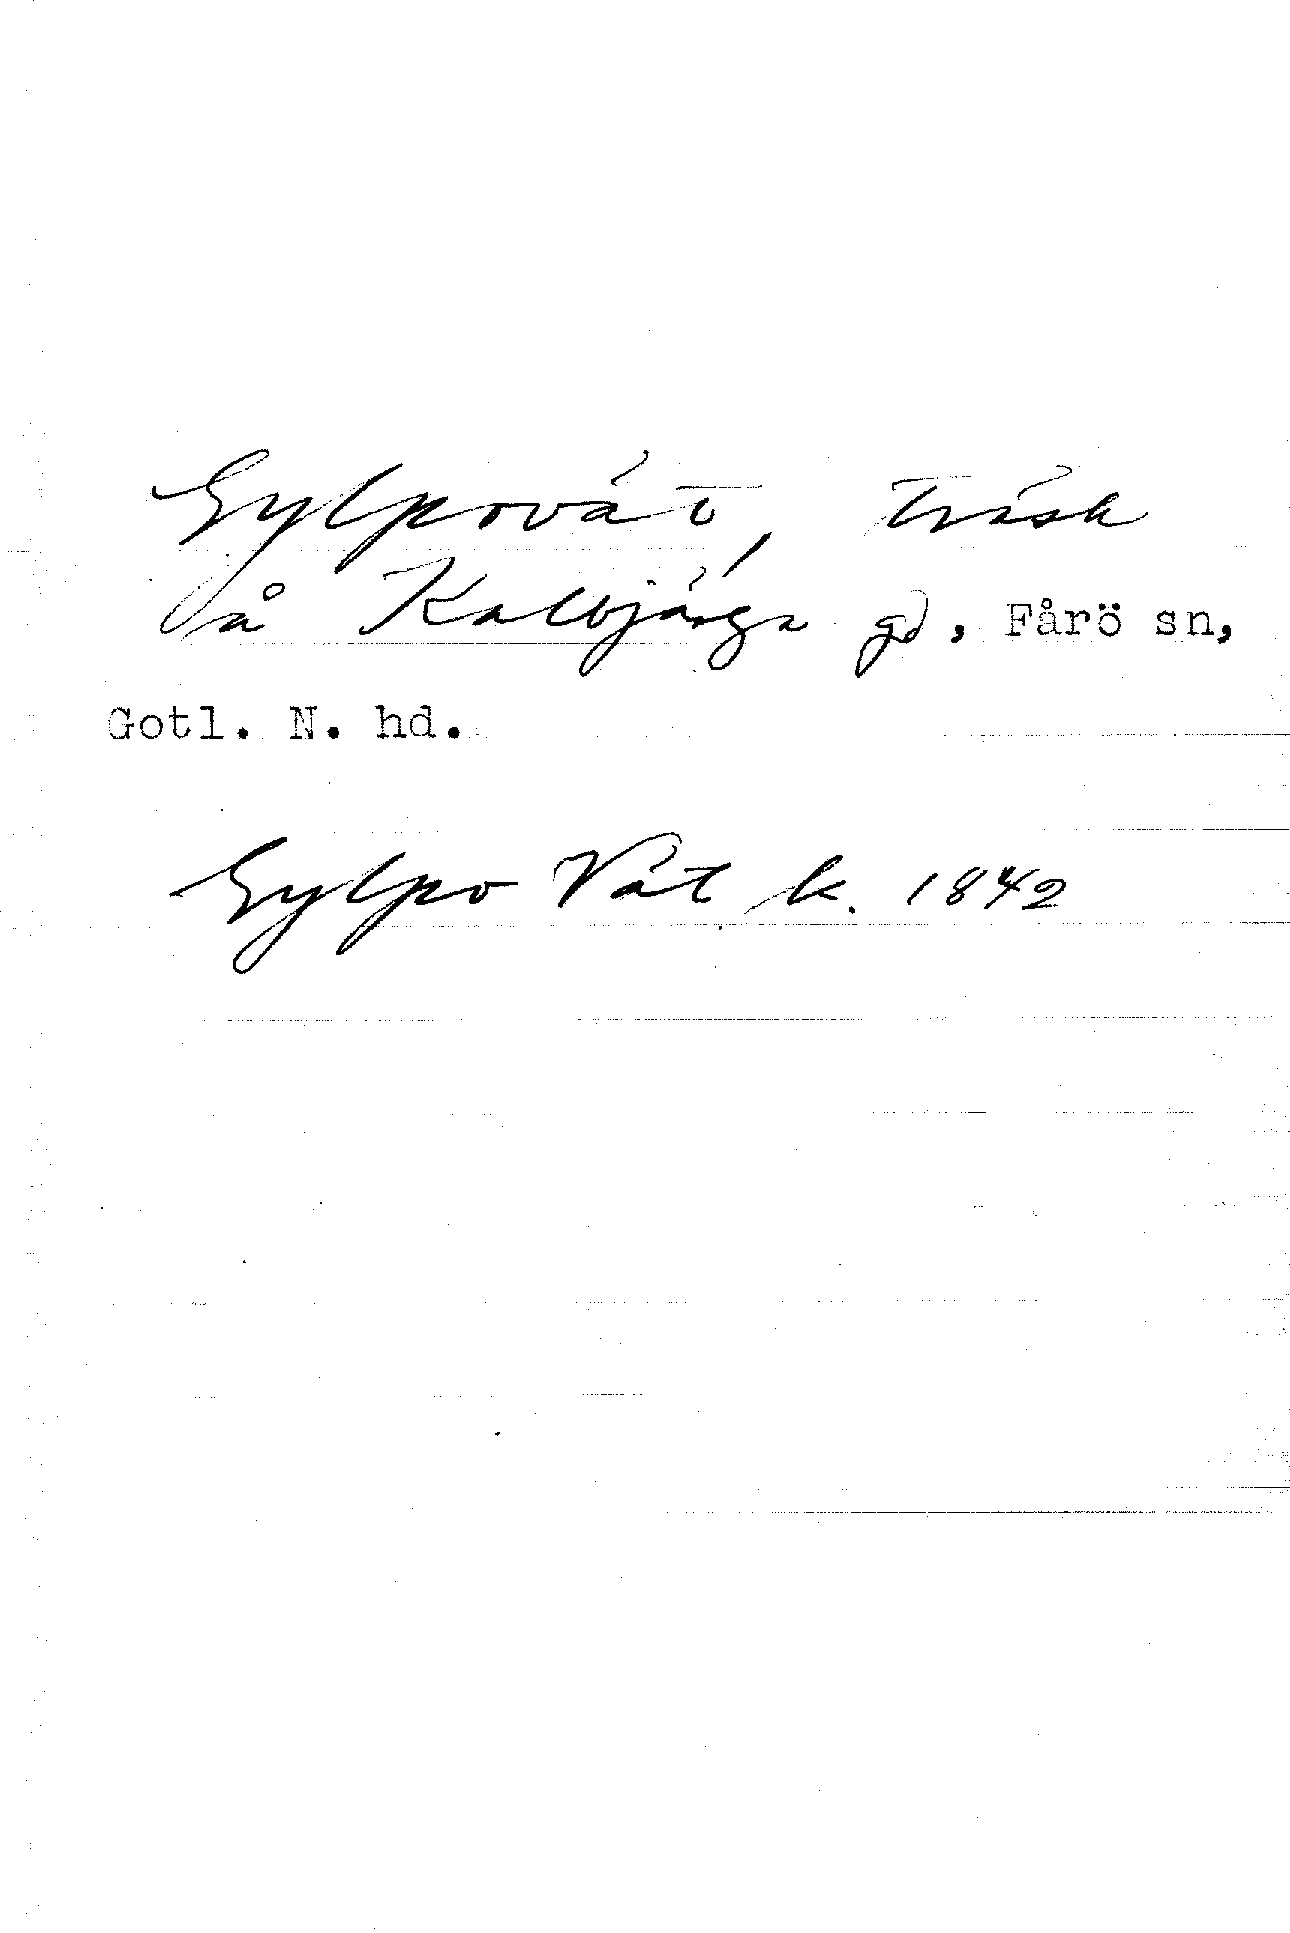 Gylpovät, träsk
å Kalbjärga gd, Fårö sn,
Gotl. N. hd.
Gylpo Vät k. 1842